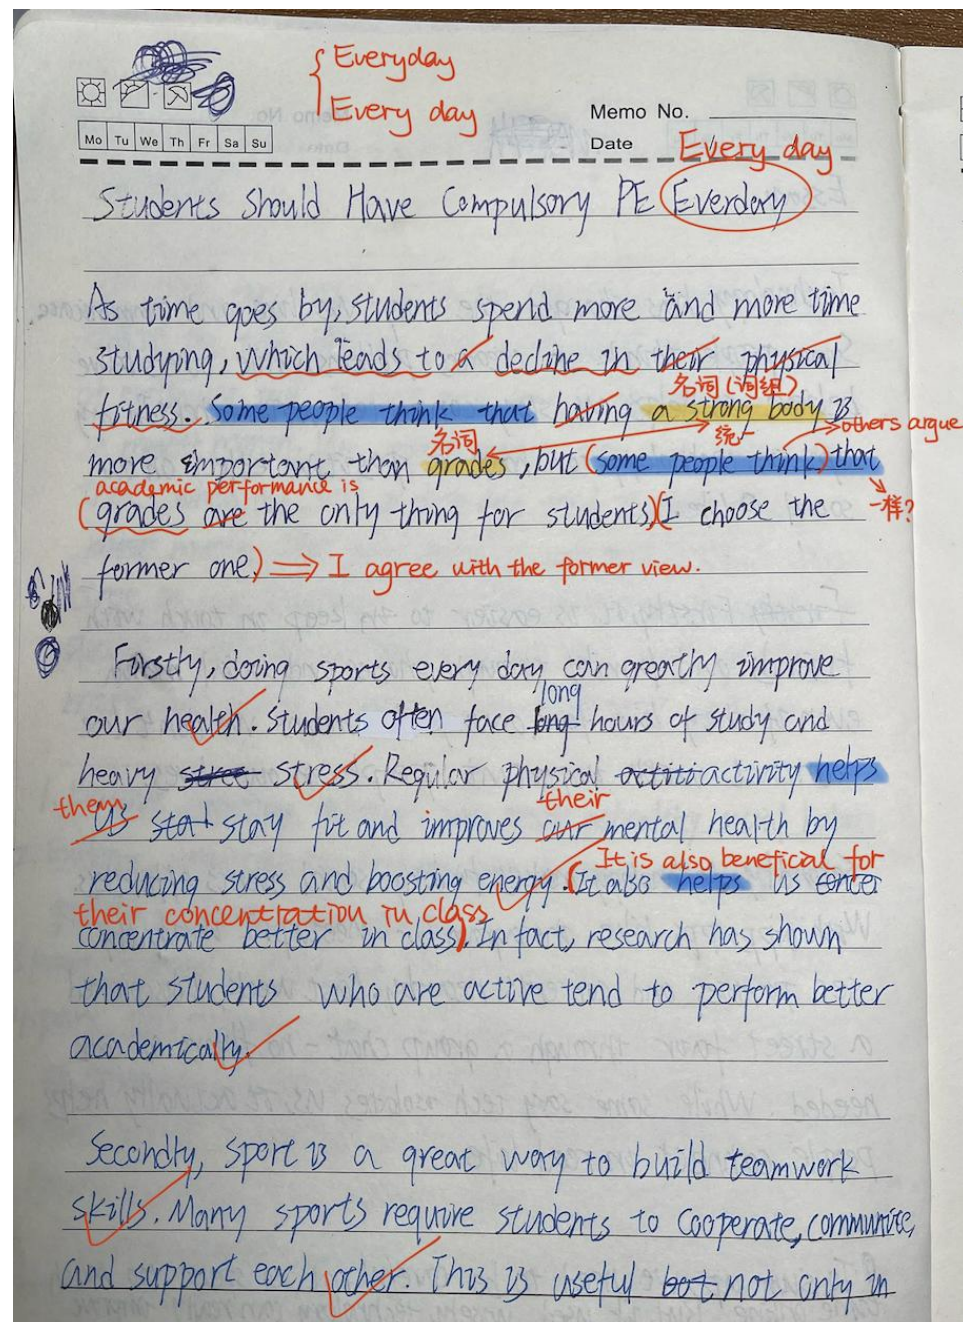 Everyday
Every day
Memo No.
Mo Tu We Th Fr Sa Su
Date
Every day
Students Should Have Compulsory PE Everday
As time goes by, students spend more and more time
studying, which leads to a decline in their physical
名词(词组)
fitness. Some people think that having a strong body is
others argue
名词
统一
more important than grades, but (some people think) that
academic performance is
一样?
(grades are the only thing for students)(I choose the
former one) ⇒ I agree with the former view.
Firstly, doing sports every day can greatly improve
long
our health. Students often face long hours of study and
heavy stree stress. Regular physical actiti activity helps
them
their
us stat stay fit and improves our mental health by
It is also beneficial for
reducing stress and boosting energy. (It also helps us conter
their concentration in class
concentrate better in class). In fact, research has shown
that students who are active tend to perform better
academically.
Secondly, sport is a great way to build teamwork
skills. Many sports require students to cooperate, communite,
and support each other. This is useful bot not only in